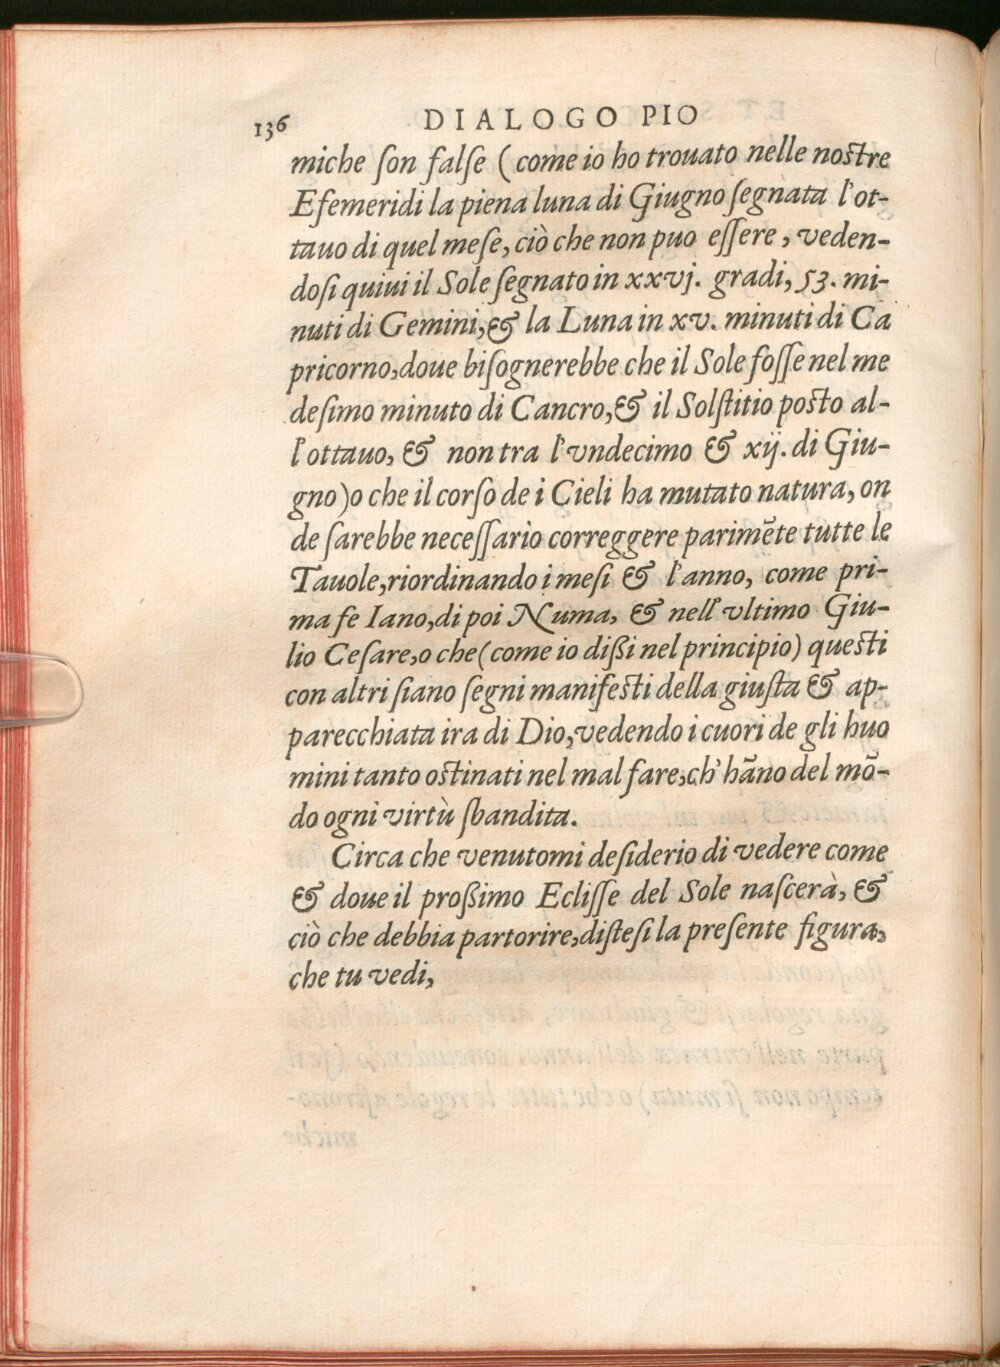 136 DIALOGO PIO
miche ſon falſe (come io ho trouato nelle noſtre
Efemeridi la piena luna di Giugno ſegnata l'ot-
tauo di quel meſe, ciò che non puo eſſere, veden-
doſi quiui il Sole ſegnato in xxvj. gradi, 53. mi-
nuti di Gemini, & la Luna in xv. minuti di Ca
pricorno, doue biſognerebbe che il Sole foſſe nel me
deſimo minuto di Cancro, & il Solſtitio poſto al-
l'ottauo, & non tra l'vndecimo & xij. di Giu-
gno) o che il corſo de i Cieli ha mutato natura, on
de ſarebbe neceſſario correggere parimēte tutte le
Tauole, riordinando i meſi & l'anno, come pri-
ma fe Iano, di poi Numa, & nell'vltimo Giu-
lio Ceſare, o che (come io dißi nel principio) queſti
con altri ſiano ſegni manifeſti della giuſta & ap-
parecchiata ira di Dio, vedendo i cuori de gli huo
mini tanto oſtinati nel mal fare, ch'hāno del mō-
do ogni virtù ſbandita.
Circa che venutomi deſiderio di vedere come
& doue il proßimo Ecliſſe del Sole naſcerà, &
ciò che debbia partorire, diſteſi la preſente figura,
che tu vedi,